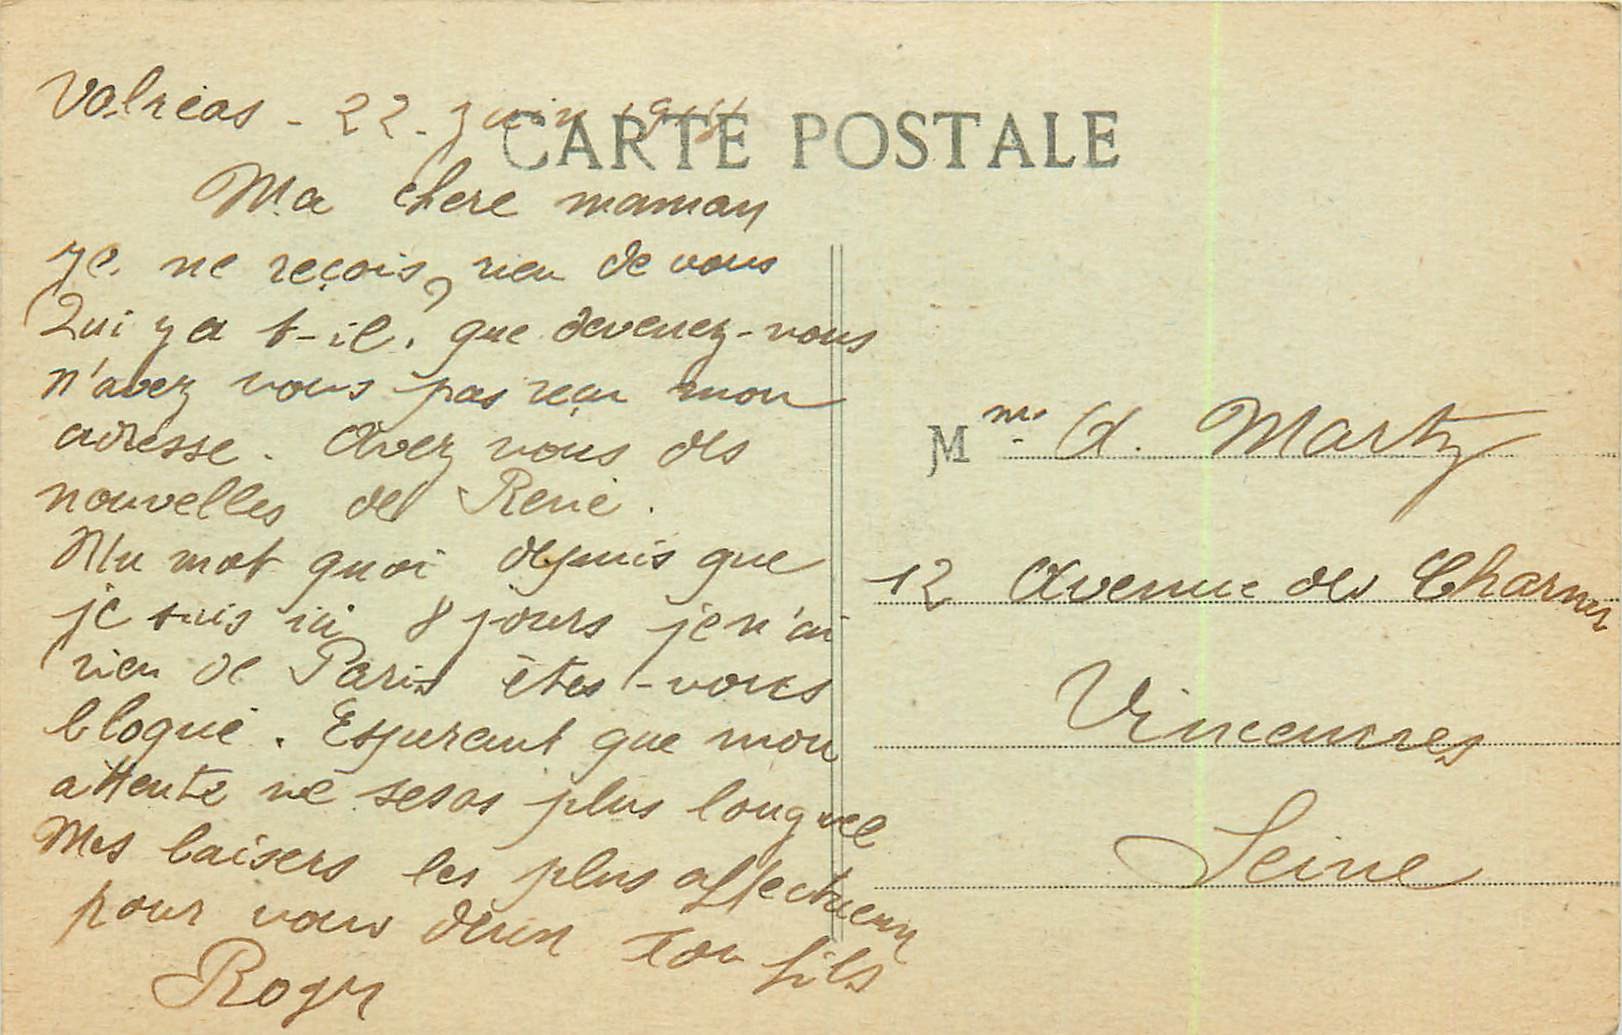 Valréas - 22 - juin
CARTE POSTALE
Ma chere maman
je ne reçois, rien de vous
Qui y a t-il, que devenez-vous
n'avez vous pas reçu mon
adresse. Avez vous des
nouvelles de René.
mot quoi depuis que
je suis ici 8 jours je n'ai
rien de Paris êtes-vous
bloqué. Esperant que mon
attente ne seras plus longue
Mes baisers les plus affectueux
pour vous deux Ton fils
Roger
Mme A. Martz
12 Avenue des Charmes
Vincennes
Seine